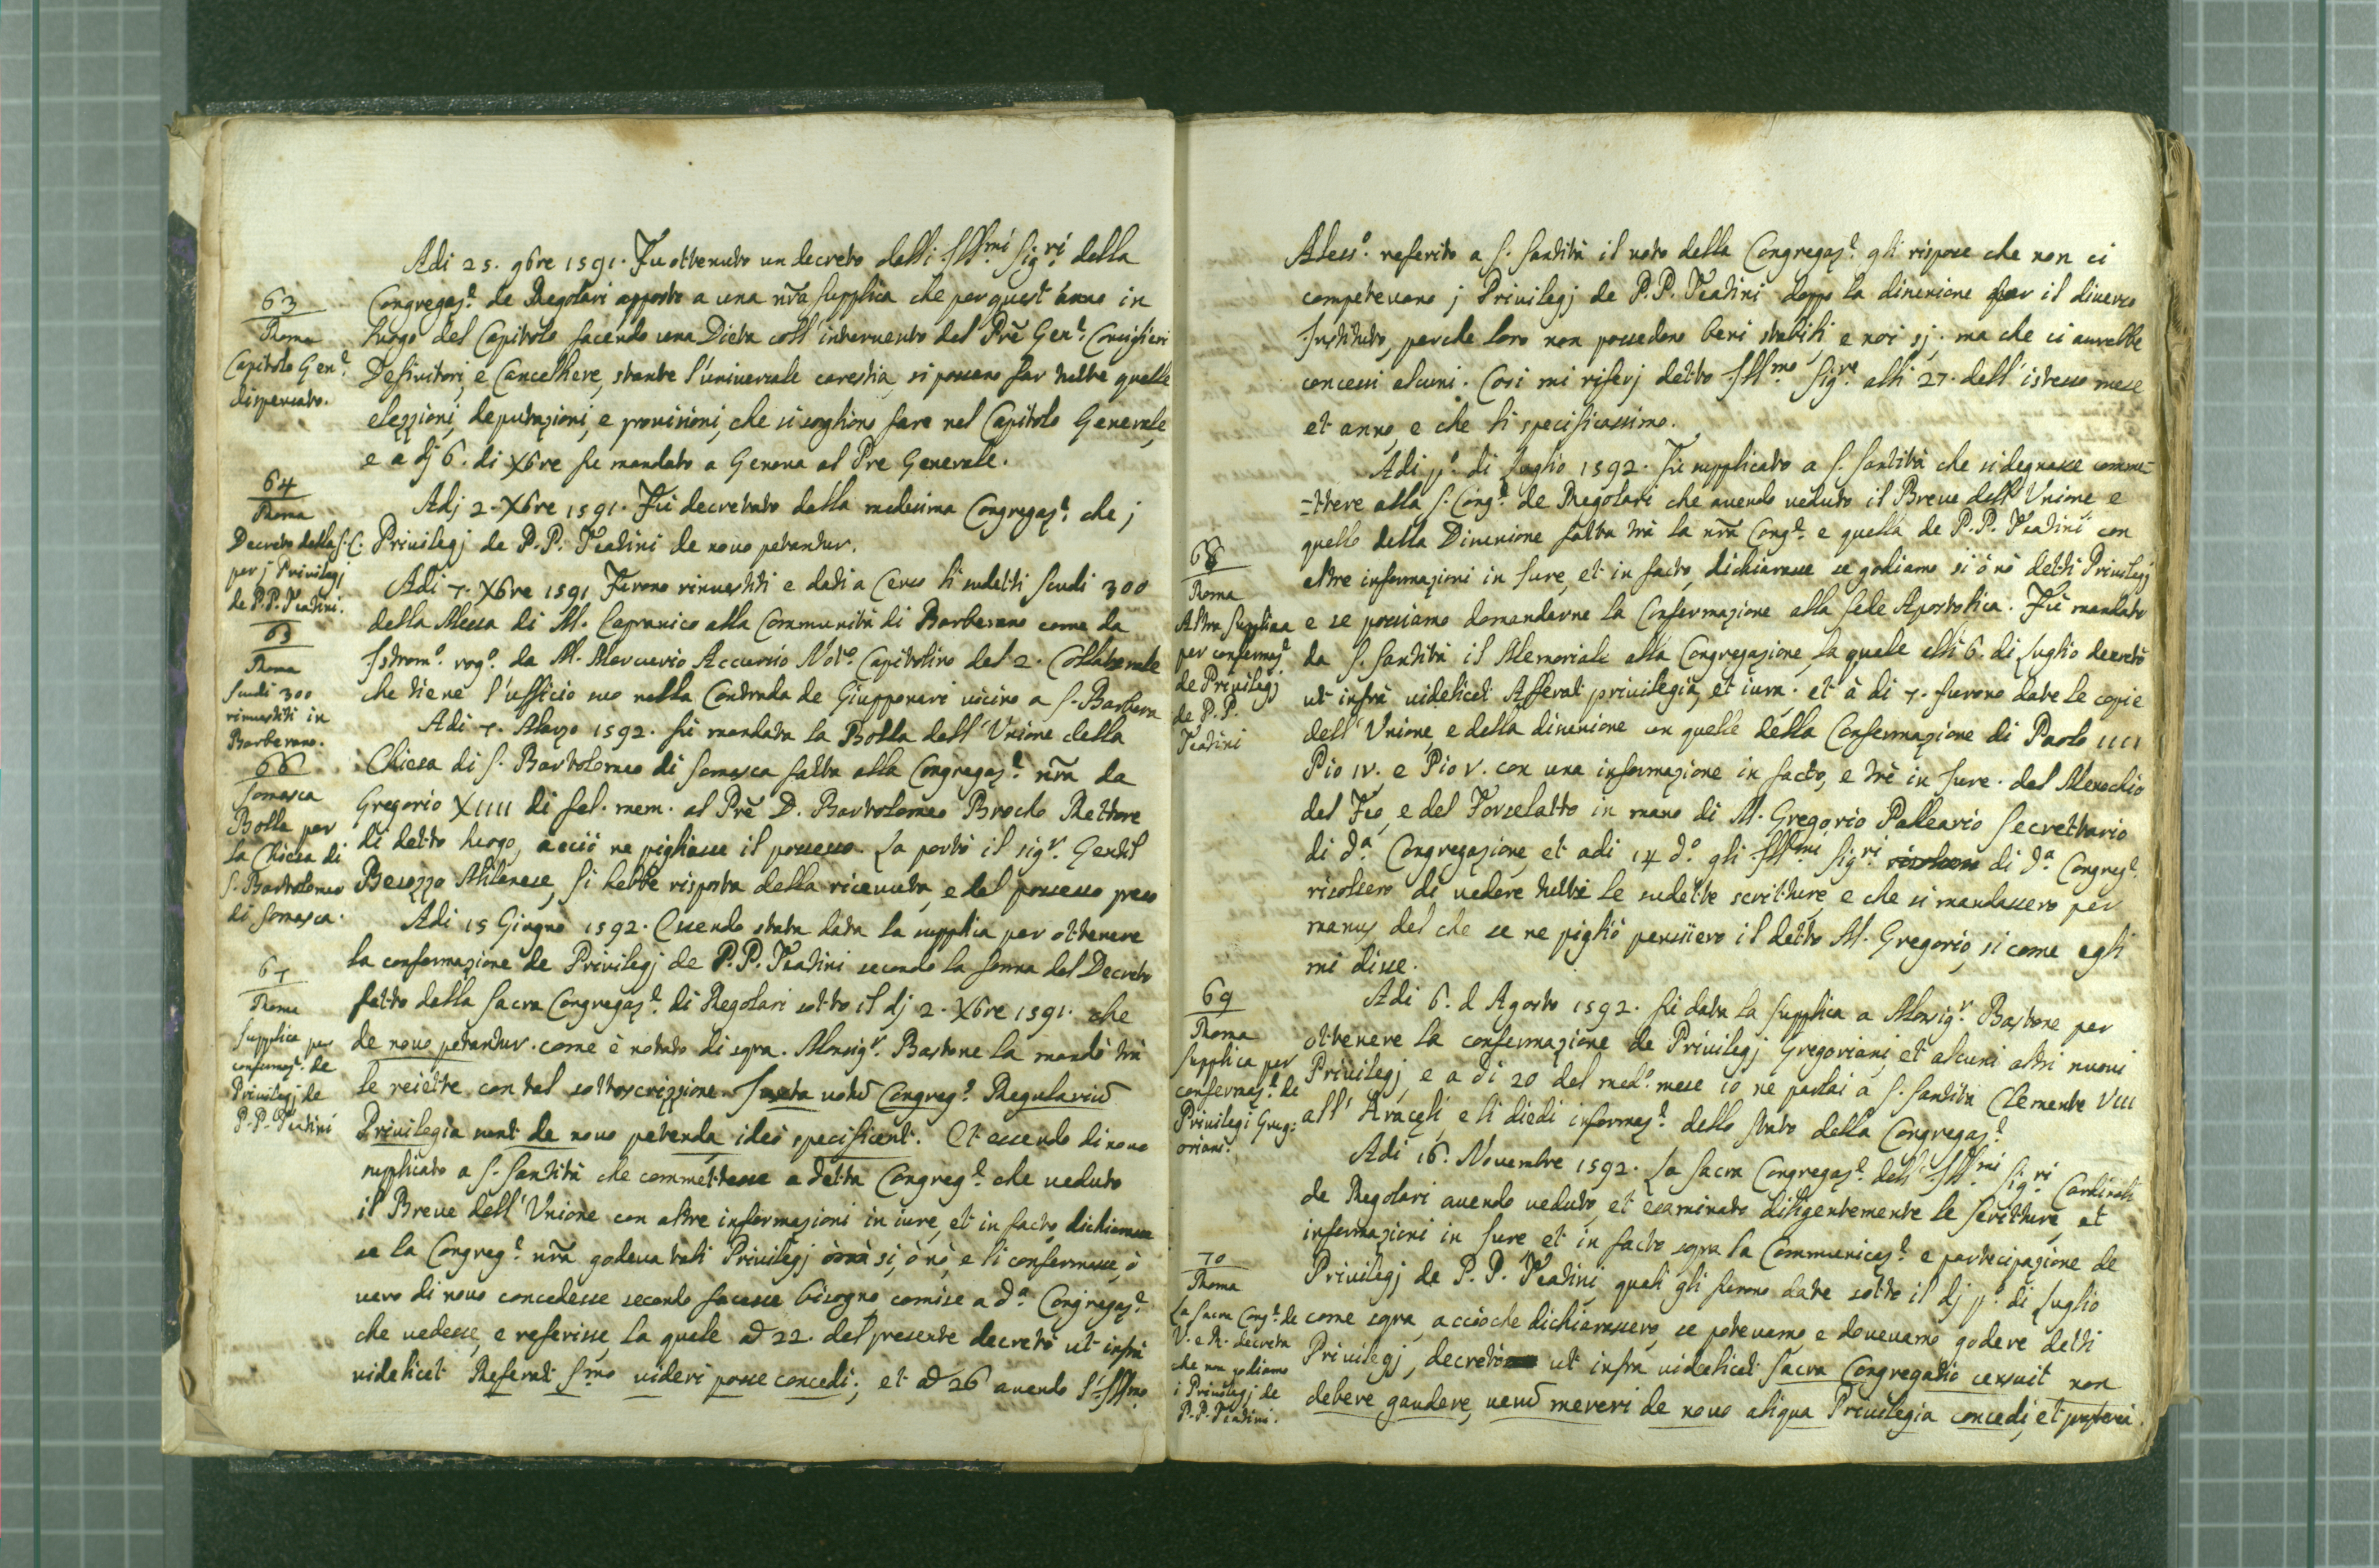 Adi 25. 9bre 1591. Fu ottenuto un decreto dalli Ill.mi Sig.ri della
63
Roma
Capitolo Gen.e
dispensato.
Congregaz.e de Regolari apposto a una nr̃a supplica che per quest'anno in
luogo del Capitolo facendo una Dieta coll'intervento del Prẽ Gen.e Consiglieri
Definitori, e Cancelliere, stante l'universale carestia, si possano far tutte quelle
elezzioni, deputazioni, e provisioni, che si sogliono fare nel Capitolo Generale,
e a dj 6. di Xbre fu mandato a Genova al Pre Generale.
64
Roma
Decreto della S. C.
per j Privilegj
de P.P. Teatini.
Adj 2. Xbre 1591. Fù decretato dalla medesima Congregaz.e che j
Privilegj de P.P. Teatini de novo petantur.
65
Roma
Scudi 300
rinvestiti in
Barberano.
Adi 7. Xbre 1591 Furono rinvestiti e dati a Censo li sudetti scudi 300
della Messa di M. Capranico alla Communità di Barberano come da
Istrom.o rog.o da M. Mercurio Accursio Not.o Capitolino del 2. Collaterale
che tiene l'ufficio suo nella Contrada de Giupponari vicino a S. Barbera
66
Somasca
Bolla per
la Chiesa di
S. Bartolomeo
di Somasca.
Adi 7. Marzo 1592. fù mandata la Bolla dell'Unione della
Chiesa di S. Bartolomeo di Somasca fatta alla Congregaz.e nr̃a da
Gregorio XIIII di fel. mem. al Prẽ D. Bartolomeo Brocho Rettore
di detto luogo, acciò ne pigliasse il possesso. La portò il sig.r Gentil
Besozzo Milanese, si hebbe risposta della ricevuta, e del possesso preso
67
Roma
Supplica per
confermaz.e de
Privilegj de
P.P. Teatini
Adi 15 Giugno 1592. Essendo stata data la supplica per ottenere
la confermazione de Privilegj de P.P. Teatini secondo la forma del Decreto
fatto dalla Sacra Congregaz.e di Regolari sotto il dj 2. Xbre 1591. che
de novo petantur. come è notato di sopra. Monsig.r Bastone la mandò trà
le reiette con tal sottoscrizzione. Iuxta votũ Congreg.e Regulariũ
Privilegia sunt de novo petenda ideò specificent. Et essendo di novo
supplicato a S. Santità che commettesse a detta Congreg.e che veduto
il Breve dell'Unione con altre informazioni in iure, et in facto, dichiarasse
se la Congreg.e nr̃a godeva tali Privilegj si, ò nò, e li confermasse, ò
vero di novo concedesse secondo facesse bisogno, comise a d.a Congregaz.e
che vedesse, e referisse, la quale ad 22. del presente decretò ut infrà
videlicet Referat S.mo videri posse concedi; et ad 26 avendo l'Ill.mo
Aless.o referito a S. Santità il voto della Congregaz.e gli rispose che non ci
competevano j Privilegj de P.P. Teatini doppo la divisione per il diverso
Instituto, perche loro non possedono beni stabili e noi sj. ma che ci avrebbe
concessi alcuni. Così mi riferj detto Ill.mo Sig.re alli 27. dell'istesso mese
et anno, e che li specificassimo.
68
Roma
Altra Supplica
per confermaz.e
de Privilegj
de P.P.
Teatini
Adi p.o di Luglio 1592. Fù supplicato a S. Santità che si degnasse comme-
-ttere alla S. Cong.e de Regolari che avendo veduto il Breve dell'Unione, e
quello della Divisione fatta trà la nr̃a Cong.e e quella de P.P. Teatini con
altre informazioni in Iure, et in facto, dichiarasse se godiamo si ò nò detti Privilegj
e se possiamo domandarne la Confermazione alla Sede Apostolica. Fù mandato
da S. Santità il Memoriale alla Congregazione la quale alli 6. di Luglio decretò
ut infrà videlicet Afferat privilegia, et iura. et à di 7. furono date le copie
dell'Unione, e della divisione con quelle della Confermazione di Paolo IIII
Pio IV. e Pio V. con una informazione in facto, e trè in Iure. del Menochio
del Feo, e del Forzelatto in mano di M. Gregorio Palleario Secrettario
di d.a Congregazione, et adi 14 d.o gli Ill.mi Sig.ri di d.a Congreg.e
risolsero di vedere tutte le sudette scritture, e che si mandassero per
manus del che se ne pigliò pensiero il detto M. Gregorio, si come egli
mi disse.
69
Roma
Supplica per
confermaz.e de
Privilegi Greg-
oriani.
Adi 6. d Agosto 1592. fù data la supplica a Monsig.r Bastone per
ottenere la confermazione de Privilegj Gregoriani, et alcuni altri nuovi
Privilegj, e a di 20 del med.o mese io ne parlai a S. Santità Clemente VIII
all'Araceli, e li diedi informaz.e dello stato della Congregaz.e
70
Roma
La Sacra Cong.e de
V. e R. decreta
che non godiamo
i Privilegj de
P.P. Teatini.
Adi 16. Novembre 1592. La Sacra Congregaz.e dell'Ill.mi Sig.ri Cardinali
de Regolari avendo veduto, et esaminato diligentemente le scritture, et
informazioni in Iure et in facto sopra la Communicaz.e e partecipazione de
Privilegj de P.P. Teatini, quali gli furono date sotto il dj p.o di Luglio
come sopra, acciòche dichiarassero, se potevamo e dovevamo godere detti
Privilegj, decretò ut infra videlicet Sacra Congregatio censuit non
debere gaudere, verũ mereri de novo aliqua Privilegia concedi, et propterea